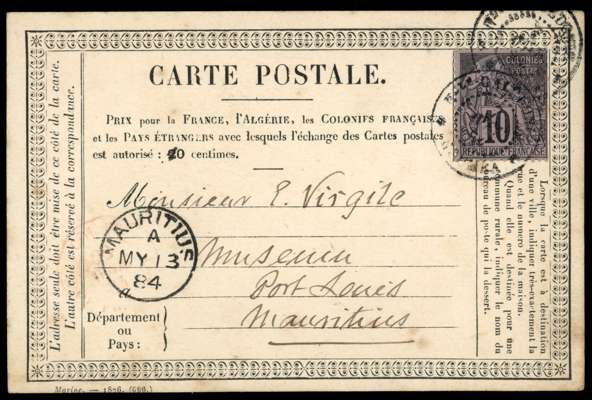 CARTE POSTALE.
COLONIES
POSTES
10
RÉPUBLIQUE FRANÇAISE
PRIX pour la FRANCE, l'ALGÉRIE, les COLONIES FRANÇAISES
et les PAYS ÉTRANGERS avec lesquels l'échange des Cartes postales
est autorisé : 10 centimes.
Monsieur E. Virgile
Museum
Port Louis
Mauritius
MAURITIUS
A
MY 13
84
a
Département
ou
Pays :
L'adresse seule doit être mise de ce côté de la carte.
L'autre côté est réservé à la correspondance.
Lorsque la carte est à destination
d'une ville, indiquer très-exactement la
rue et le numéro de la maison.
Quand elle est destinée pour une
commune rurale, indiquer le nom du
bureau de poste qui la dessert.
Marine. — 1876. (666.)